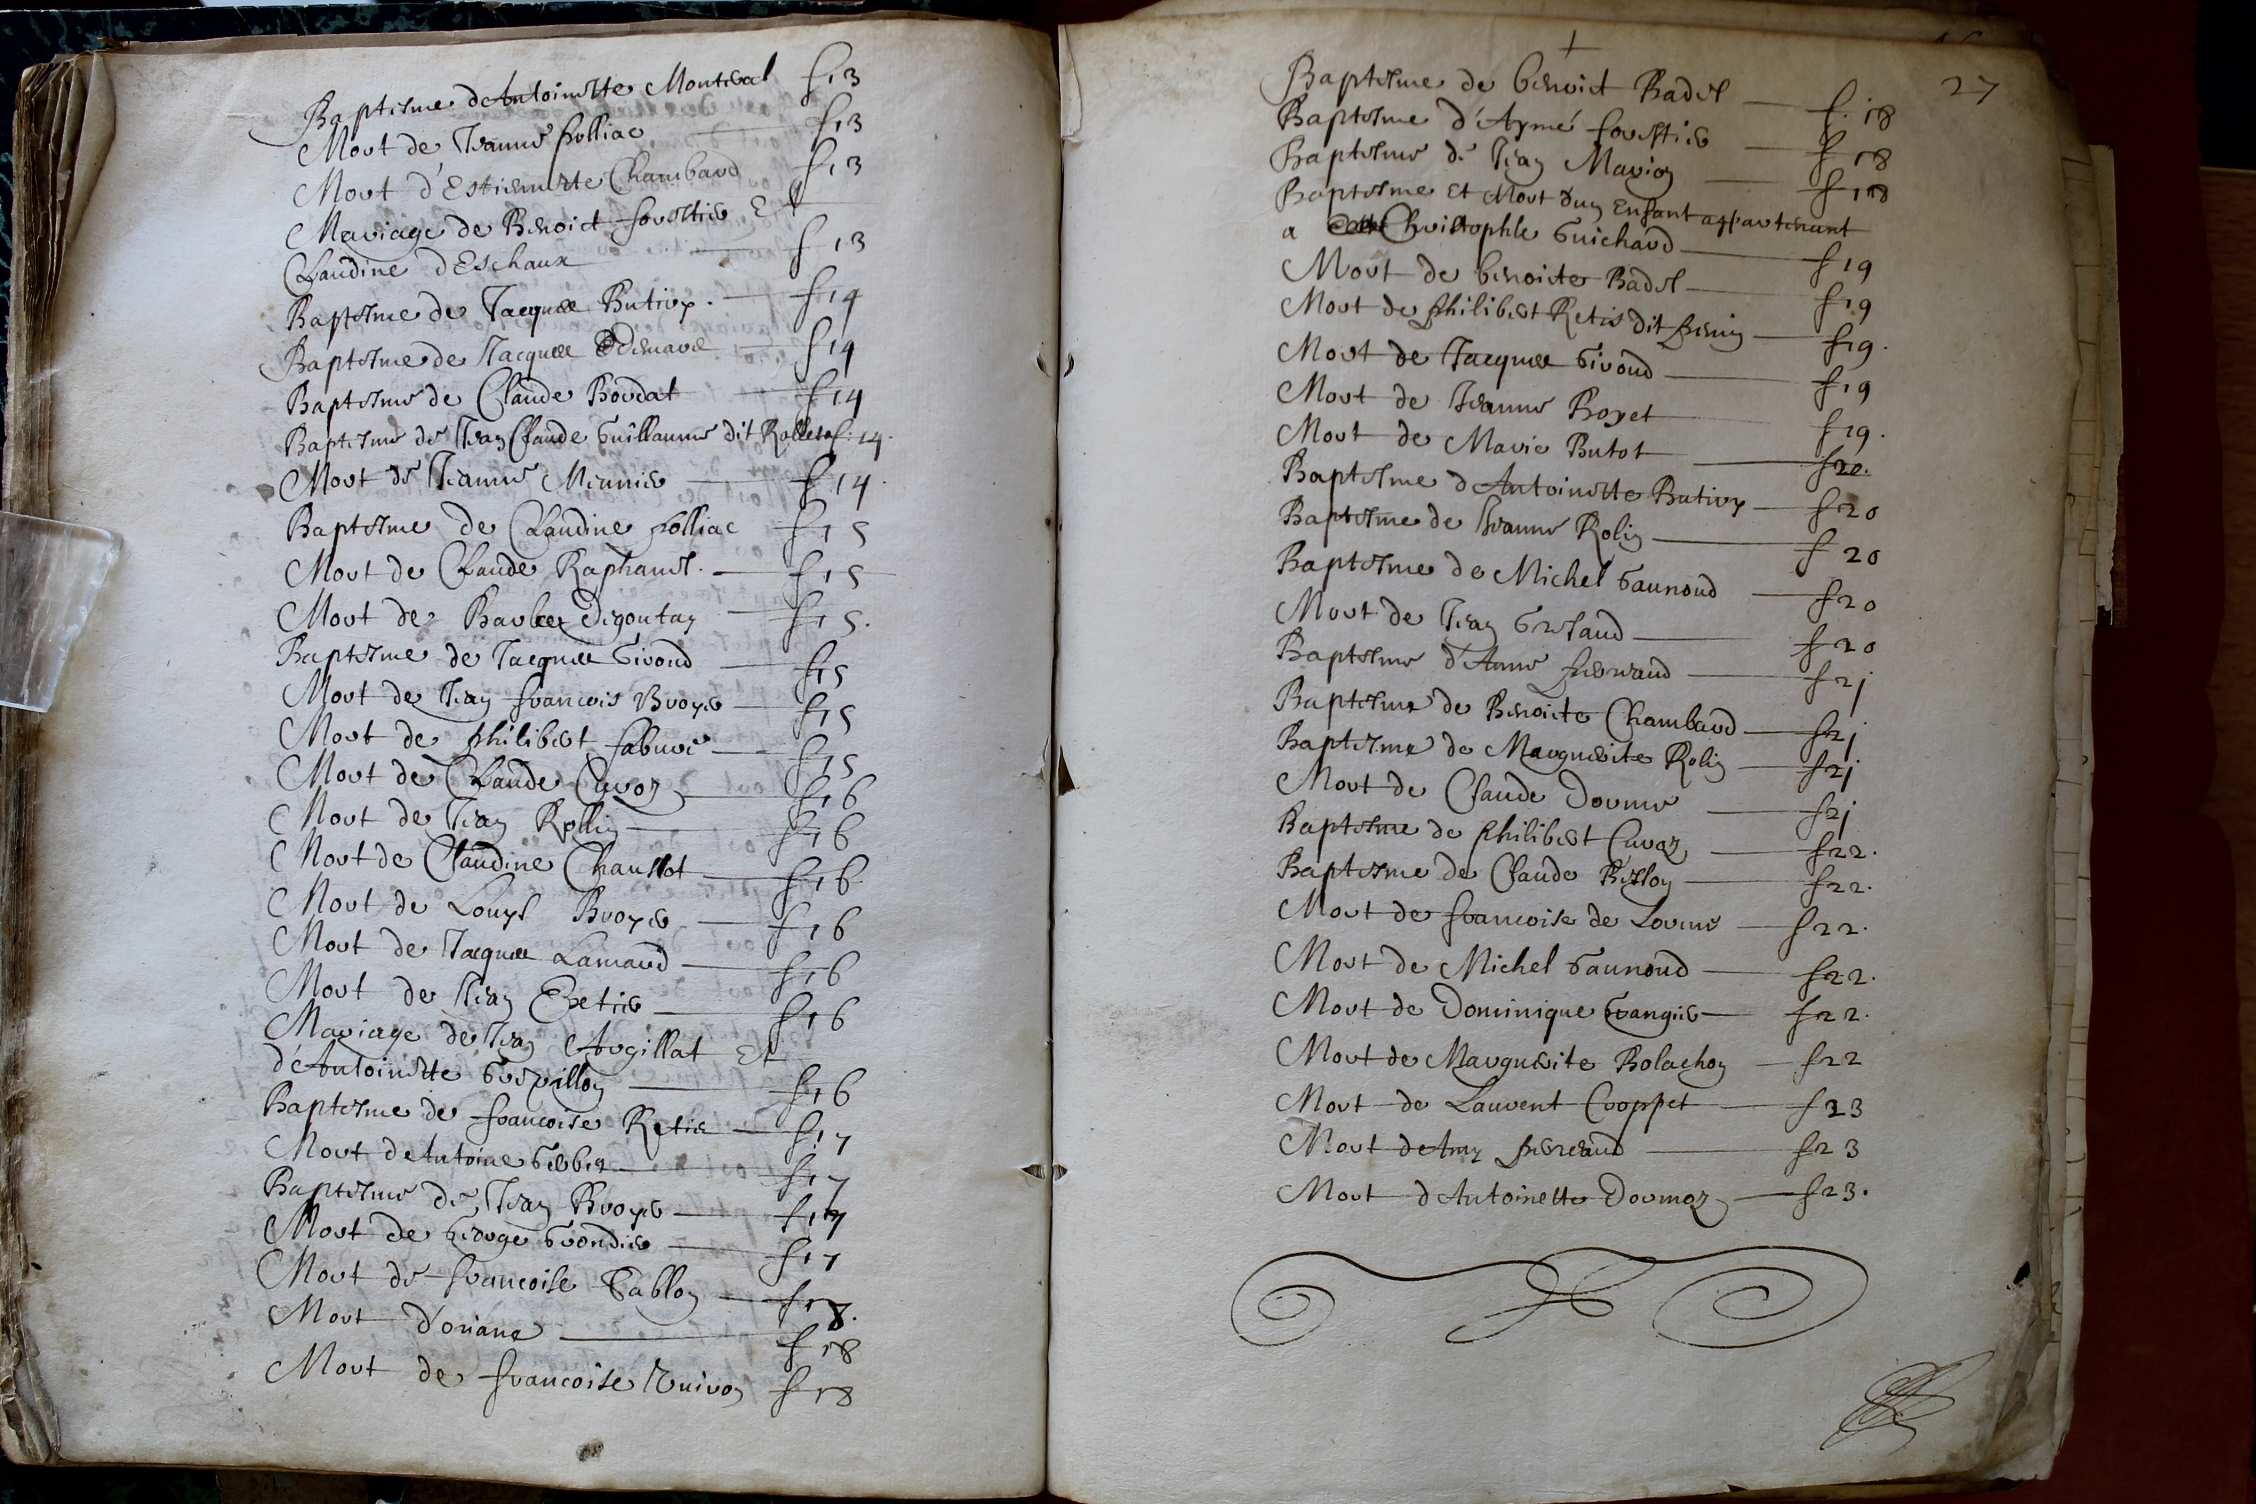 Baptesme dAntoinette Monteval f 13
Mort de Jeanne folliac f 13
Mort d'Estiennette Chambard f 13
Mariage de Benoict forestier Et
Claudine dEschaux f 13
Baptesme de Jacques Butiry f 14
Baptesme de Jacques f 14
Baptesme de Claude Bordat f 14
Baptesme de Jean Claude Guillaume dit Rollet f. 14.
Mort de Jeanne Meunier f 14.
Baptesme de Claudine folliac f 15
Mort de Claude Raphanel. f 15
Mort de Digoutay f 15.
Baptesme de Jacques Girord f 15
Mort de Jean francois Broyer f 15
Mort de philibert fabure f 15
Mort de Claude Cavoz f 16
Mort de Jean Rollin f 16
Mort de Claudine Chaussot f 16
Mort de Louys Broyer f 16
Mort de Jacques Lamard f 16
Mort de Jean f 16
Mariage de Jean Augillat Et
d'Antoinette f 16
Baptesme de francoise Retis f. 17
Mort dAntoine f 17
Baptesme de Jean Broyer f 17
Mort de George Grondier f 17
Mort de francoise Sablon f 17.
Mort d'oriane f 18
Mort de francoise f 18
27
Baptesme de benoict Badel f. 18
Baptesme d'Aymé forestier f 18
Baptesme de Jean Marion f 18
Baptesme Et Mort dun Enfant appartenant
a Christophle Guichard f 19
Mort de benoiste Badel f 19
Mort de philibert Retis dit f 19.
Mort de Jacques Girord f 19
Mort de Jeanne Boyet f 19.
Mort de Marie Butot f 20.
Baptesme dAntoinette Butiry f 20
Baptesme de Jeanne Rolin f 20
Baptesme de Michel Gaunord f 20
Mort de Jean f 20
Baptesme d'Anne f 21
Baptesme de Benoicte Chambard f 21
Baptesme de Marguerite Rolin f 21
Mort de Claude Dorme f 21
Baptesme de philibert Cavoz f 22.
Baptesme de Claude f 22.
Mort de francoise de Lorme f 22.
Mort de Michel Gaunord f 22.
Mort de Dominique Grangier f 22.
Mort de Marguerite Bolachon f 22
Mort de Laurent Croppet f 23
Mort f 23
Mort dAntoinette Dormoz f 23.